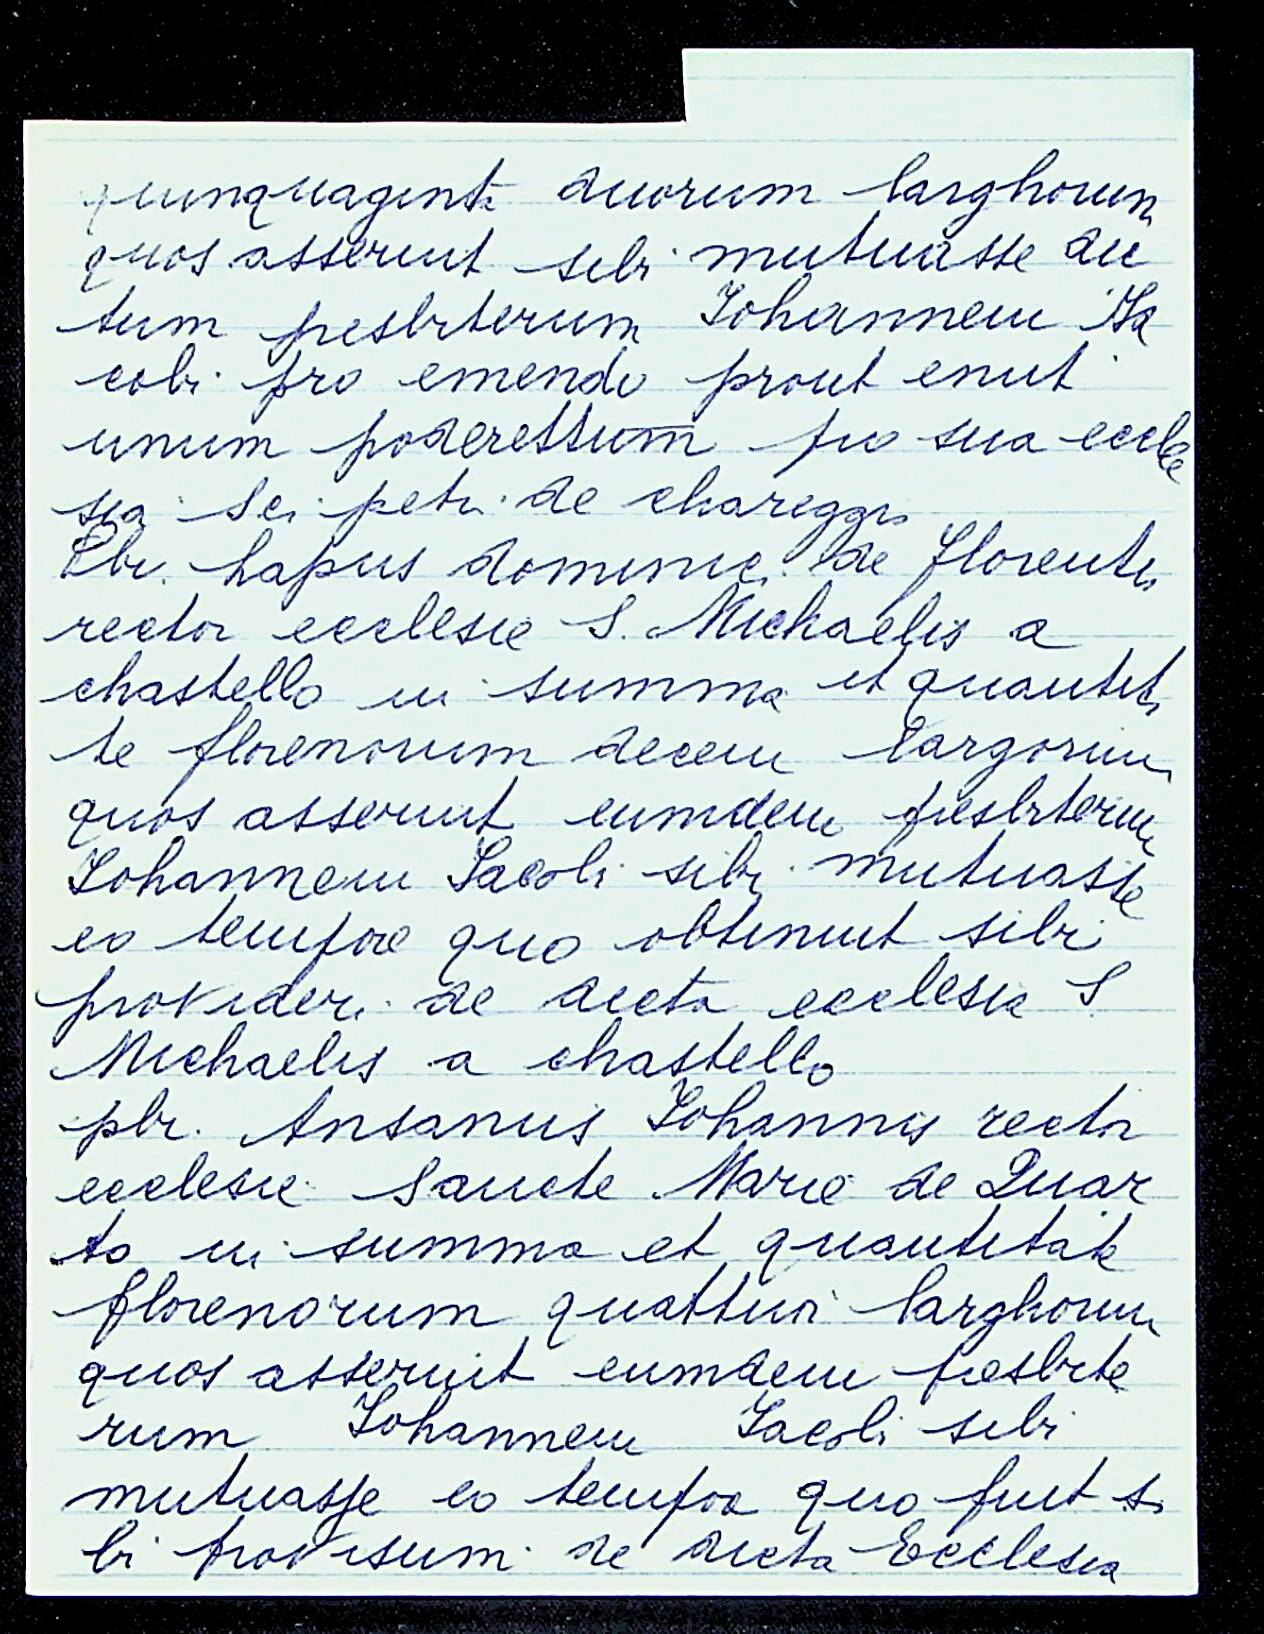 quinquaginta duorum larghorum
quos asseruit sibi mutuasse dic
tum presbiterum Iohannem Ia
cobi pro emendo prout emit
unum poderettum pro sua eccle
sia Sci petri de chareggis
Pbr. hapus dominici de florentis
rector ecclesie S. Michaelis a
chastello in summa et quantita
te florenorum decem largorum
quos asseruit eumdem presbiterum
Iohannem Iacobi sibi mutuasse
eo tempore quo obtinuit sibi
provideri de dicta ecclesia S
Michaelis a chastello
pbr. Ansanus Iohannis rector
ecclesie Sancte Marie de Quar
to in summa et quantitate
florenorum quattuor larghorum
quos asseruit eumdem presbite
rum Iohannem Iacobi sibi
mutuasse eo tempore quo fuit si
bi provisum de dicta Ecclesia